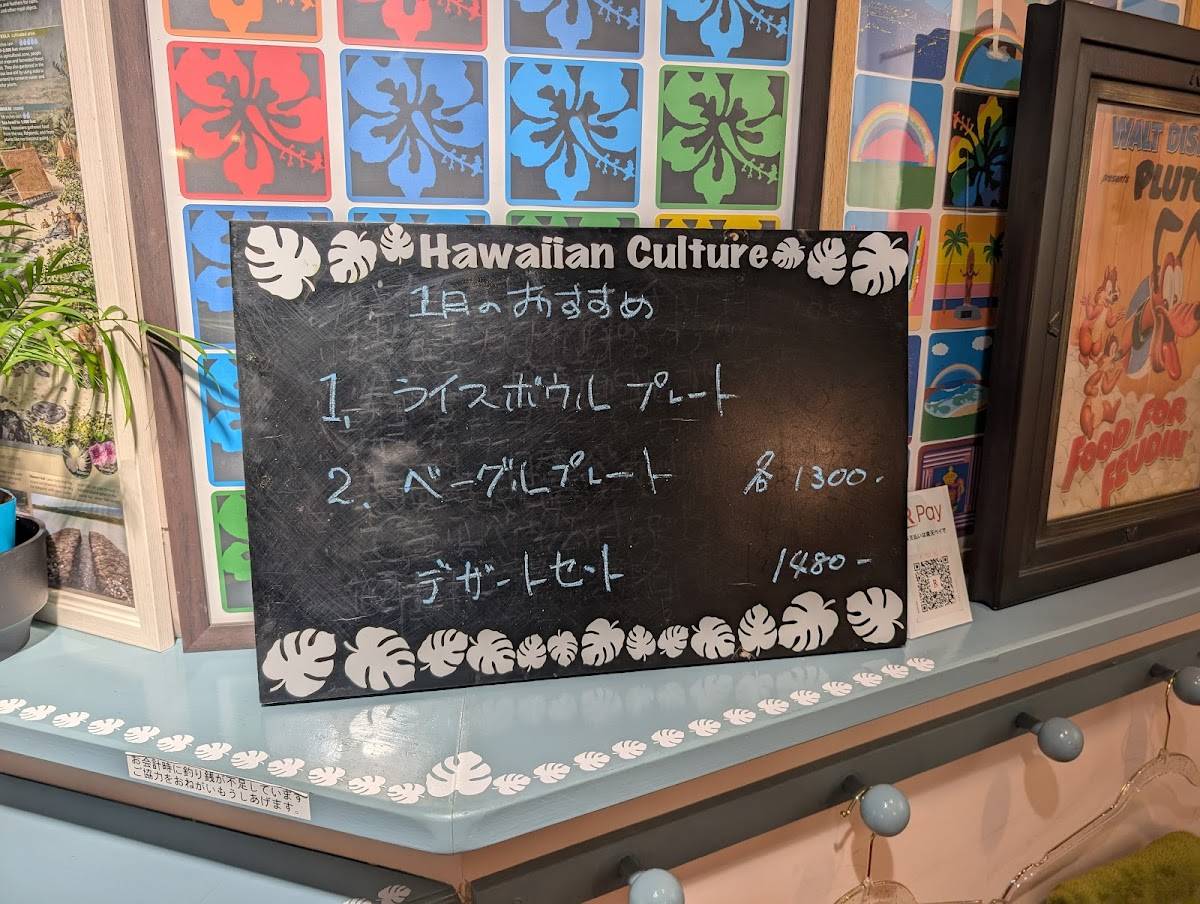 Hawaiian Culture
1日のおすすめ
1. ライスボウルプレート
2. ベーグルプレート 各1300.
デザートセット 1480-
R Pay
お会計時に釣り銭が不足しています
ご協力をおねがいもうしあげます。
WALT DIS
presents
PLUTO
FOOD FOR
FEUDIN'